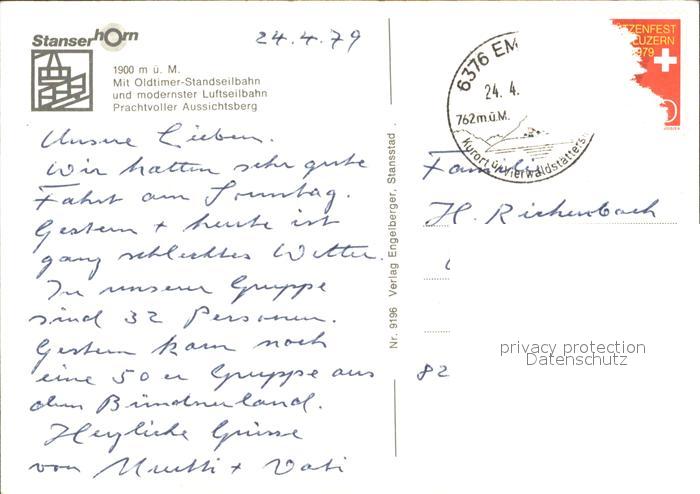 Stanserhorn
24.4.79
1900 m ü. M.
Mit Oldtimer-Standseilbahn
und modernster Luftseilbahn
Prachtvoller Aussichtsberg
Unsere Lieben.
Wir hatten sehr gute
Fahrt am Sonntag.
Gestern + heute ist
ganz schlechtes Wetter.
In unserer Gruppe
sind 32 Personen.
Gestern kam noch
eine 50er Gruppe aus
dem Bündnerland.
Herzliche Grüsse
von Mutti + Vati
Nr. 9196 Verlag Engelberger, Stansstad
6376 EM
24. 4.
762 m.ü.M.
Kurort ü. Vierwaldstätters
TZENFEST
LUZERN
1979
Familie
H. Richenbach
82
privacy protection
Datenschutz